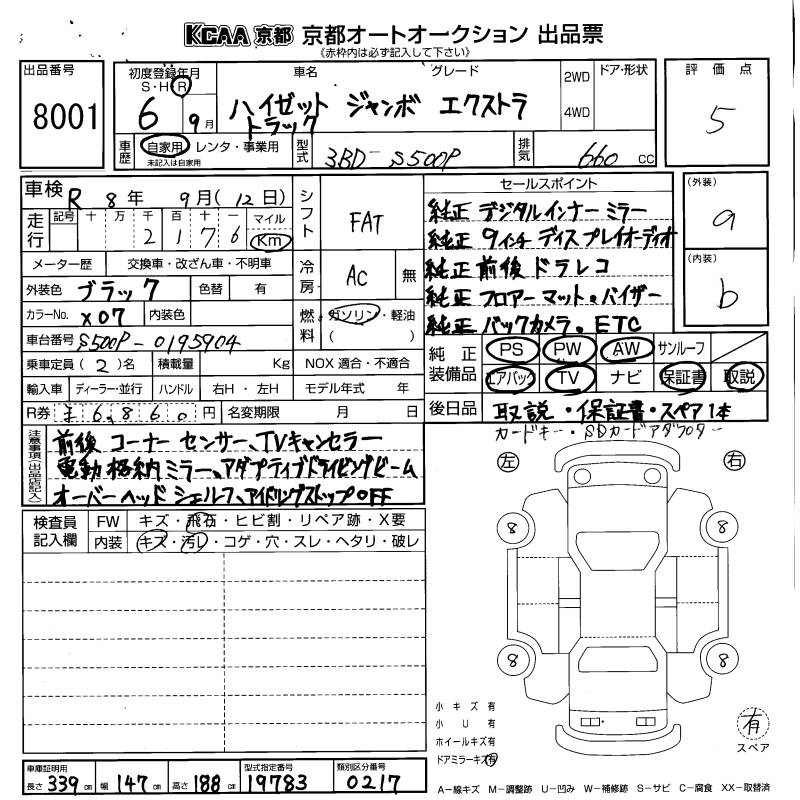 KCAA 京都 京都オートオークション 出品票
《赤枠内は必ず記入して下さい》
出品番号 8001
初度登録年月 S・H・R 6年 9月
車名 グレード
ハイゼット ジャンボ エクストラ
トラック
2WD
4WD
ドア・形状
評価点 5
車歴 自家用 レンタ・事業用
未記入は自家用
型式 3BD-S500P
排気 660 CC
車検 R 8年 9月(12日)
走行 記号 十 万 千 百 十 一
2 1 7 6
マイル Km
メーター歴 交換車・改ざん車・不明車
外装色 ブラック 色替 有
カラーNo. X07 内装色
車台番号 S500P-0195904
乗車定員 (2)名 積載量 Kg
輸入車 ディーラー・並行 ハンドル 右H・左H
R券 ¥6,860円 名変期限 月 日
シフト FAT
冷房 AC 無
燃料 ガソリン・軽油
( )
NOX 適合・不適合
モデル年式 年
セールスポイント
純正 デジタルインナーミラー
純正 9インチ ディスプレイオーディオ
純正 前後 ドラレコ
純正 フロアーマット。バイザー
純正 バックカメラ。ETC
(外装) a
(内装) b
純正装備品 PS PW AW サンルーフ
エアバック TV ナビ 保証書 取説
後日品 取説・保証書・スペア1本
カードキー・SDカードアダプター
注意事項(出品店記入)
前後 コーナーセンサー、TVキャンセラー
電動格納ミラー、アダプティブドライビングビーム
オーバーヘッドシェルフ、アイドリングストップOFF
検査員記入欄
FW キズ・飛石・ヒビ割・リペア跡・X要
内装 キズ・汚レ・コゲ・穴・スレ・ヘタリ・破レ
左 右
8 8
8 8
小キズ有
小U有
ホイールキズ有
ドアミラーキズ有
有
スペア
車庫証明用
長さ 339cm 幅 147cm 高さ 188cm
型式指定番号 19783
類別区分番号 0217
A―線キズ M―調整跡 U―凹み W―補修跡 S―サビ C―腐食 XX―取替済